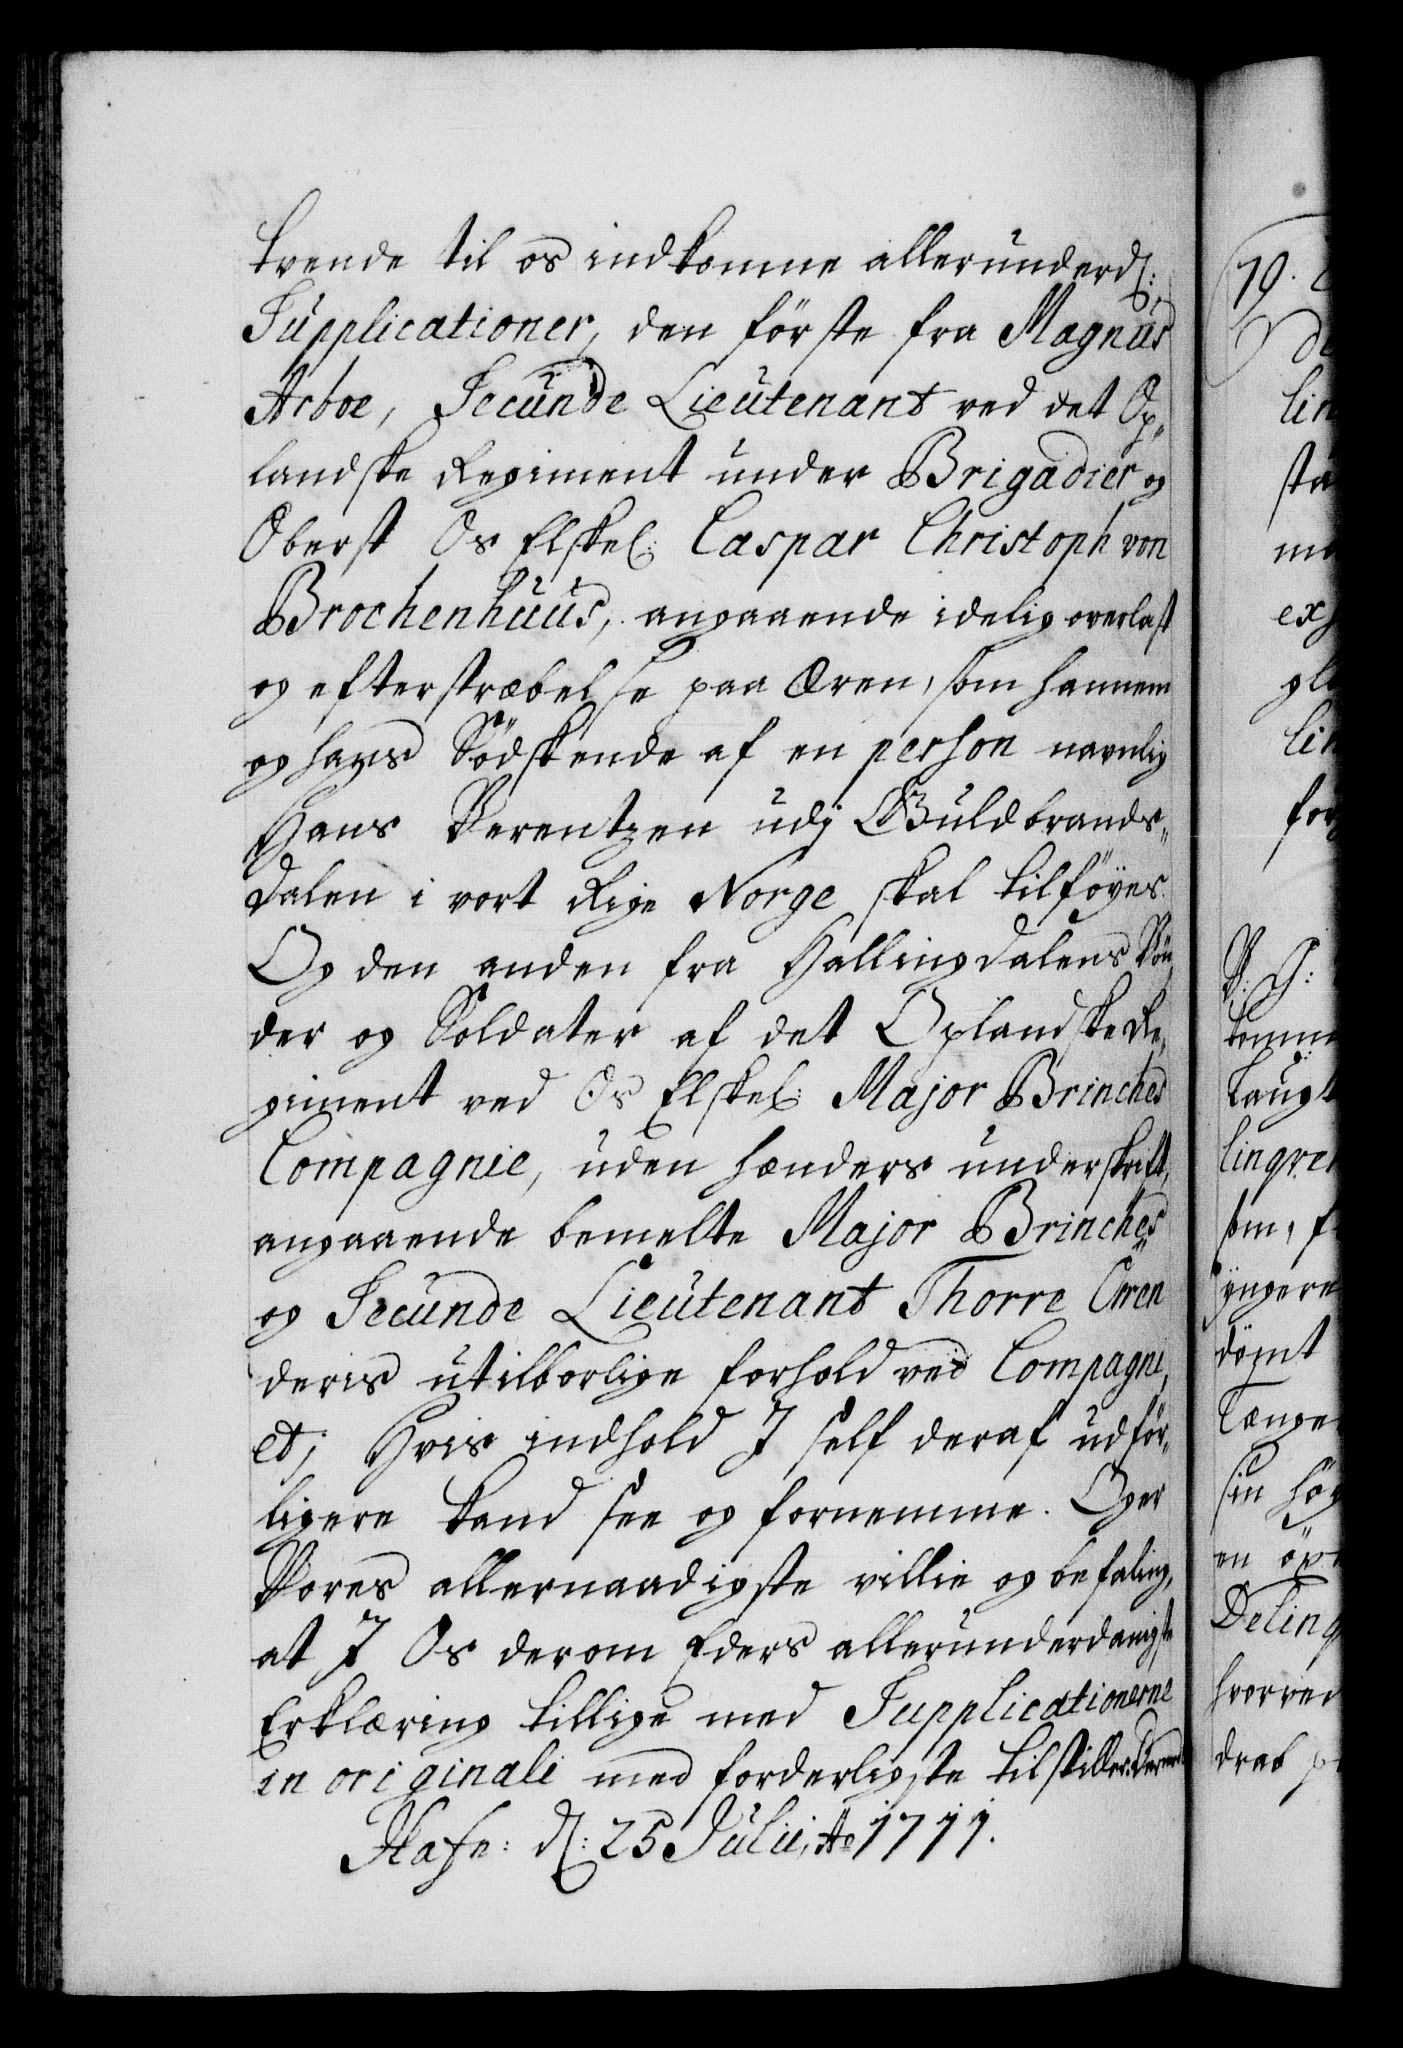 tvende til os indkomne allerunderd:
Supplicationer, den förste fra Magnus
Arboe, Secunde Lieutenant ved det Op,,
landske Regiment under Brigadier og
Oberst Os Elskel: Caspar Christoph von
Brochenhuus, angaaende idelig overlast
og efterstræbelse paa Æren, som hannem
og hans Södskende af en person navnlig
Hans Berentzen udj Guldbrands,,
dalen i vort Rige Norge skal tilföyes.
Og den anden fra Hallingdalens Bön
der og Soldater af det Oplandske Re,,
giment ved Os Elskel: Major Brinches
Compagnie, uden hænders underskrift,
angaaende bemelte Major Brinches
og Secunde Lieutenant Thorre
deris utilborlige forhold ved Compagni,,
et; Hvis indhold I self deraf udför,,
ligere kand see og fornemme. Og er
Vores allernaadigste villie og befaling,
at I Os derom Eders allerunderdanigste
Erklæring tillige med Supplicationerne
in originali med forderligste tilstiller.
Hafn: d: 25 Julii, Ao 1711.
19.
lin
sta
ex
lin
Delinq
dömt
hvorved